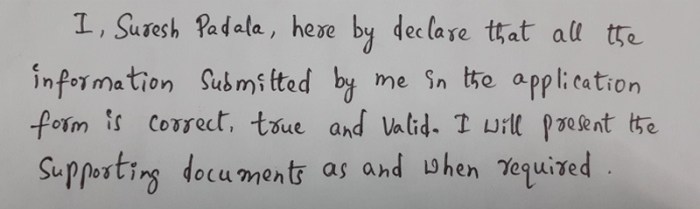 I, Suresh Padala, here by declare that all the
information Submitted by me in the application
form is correct, true and Valid. I will present the
Supporting documents as and when required.